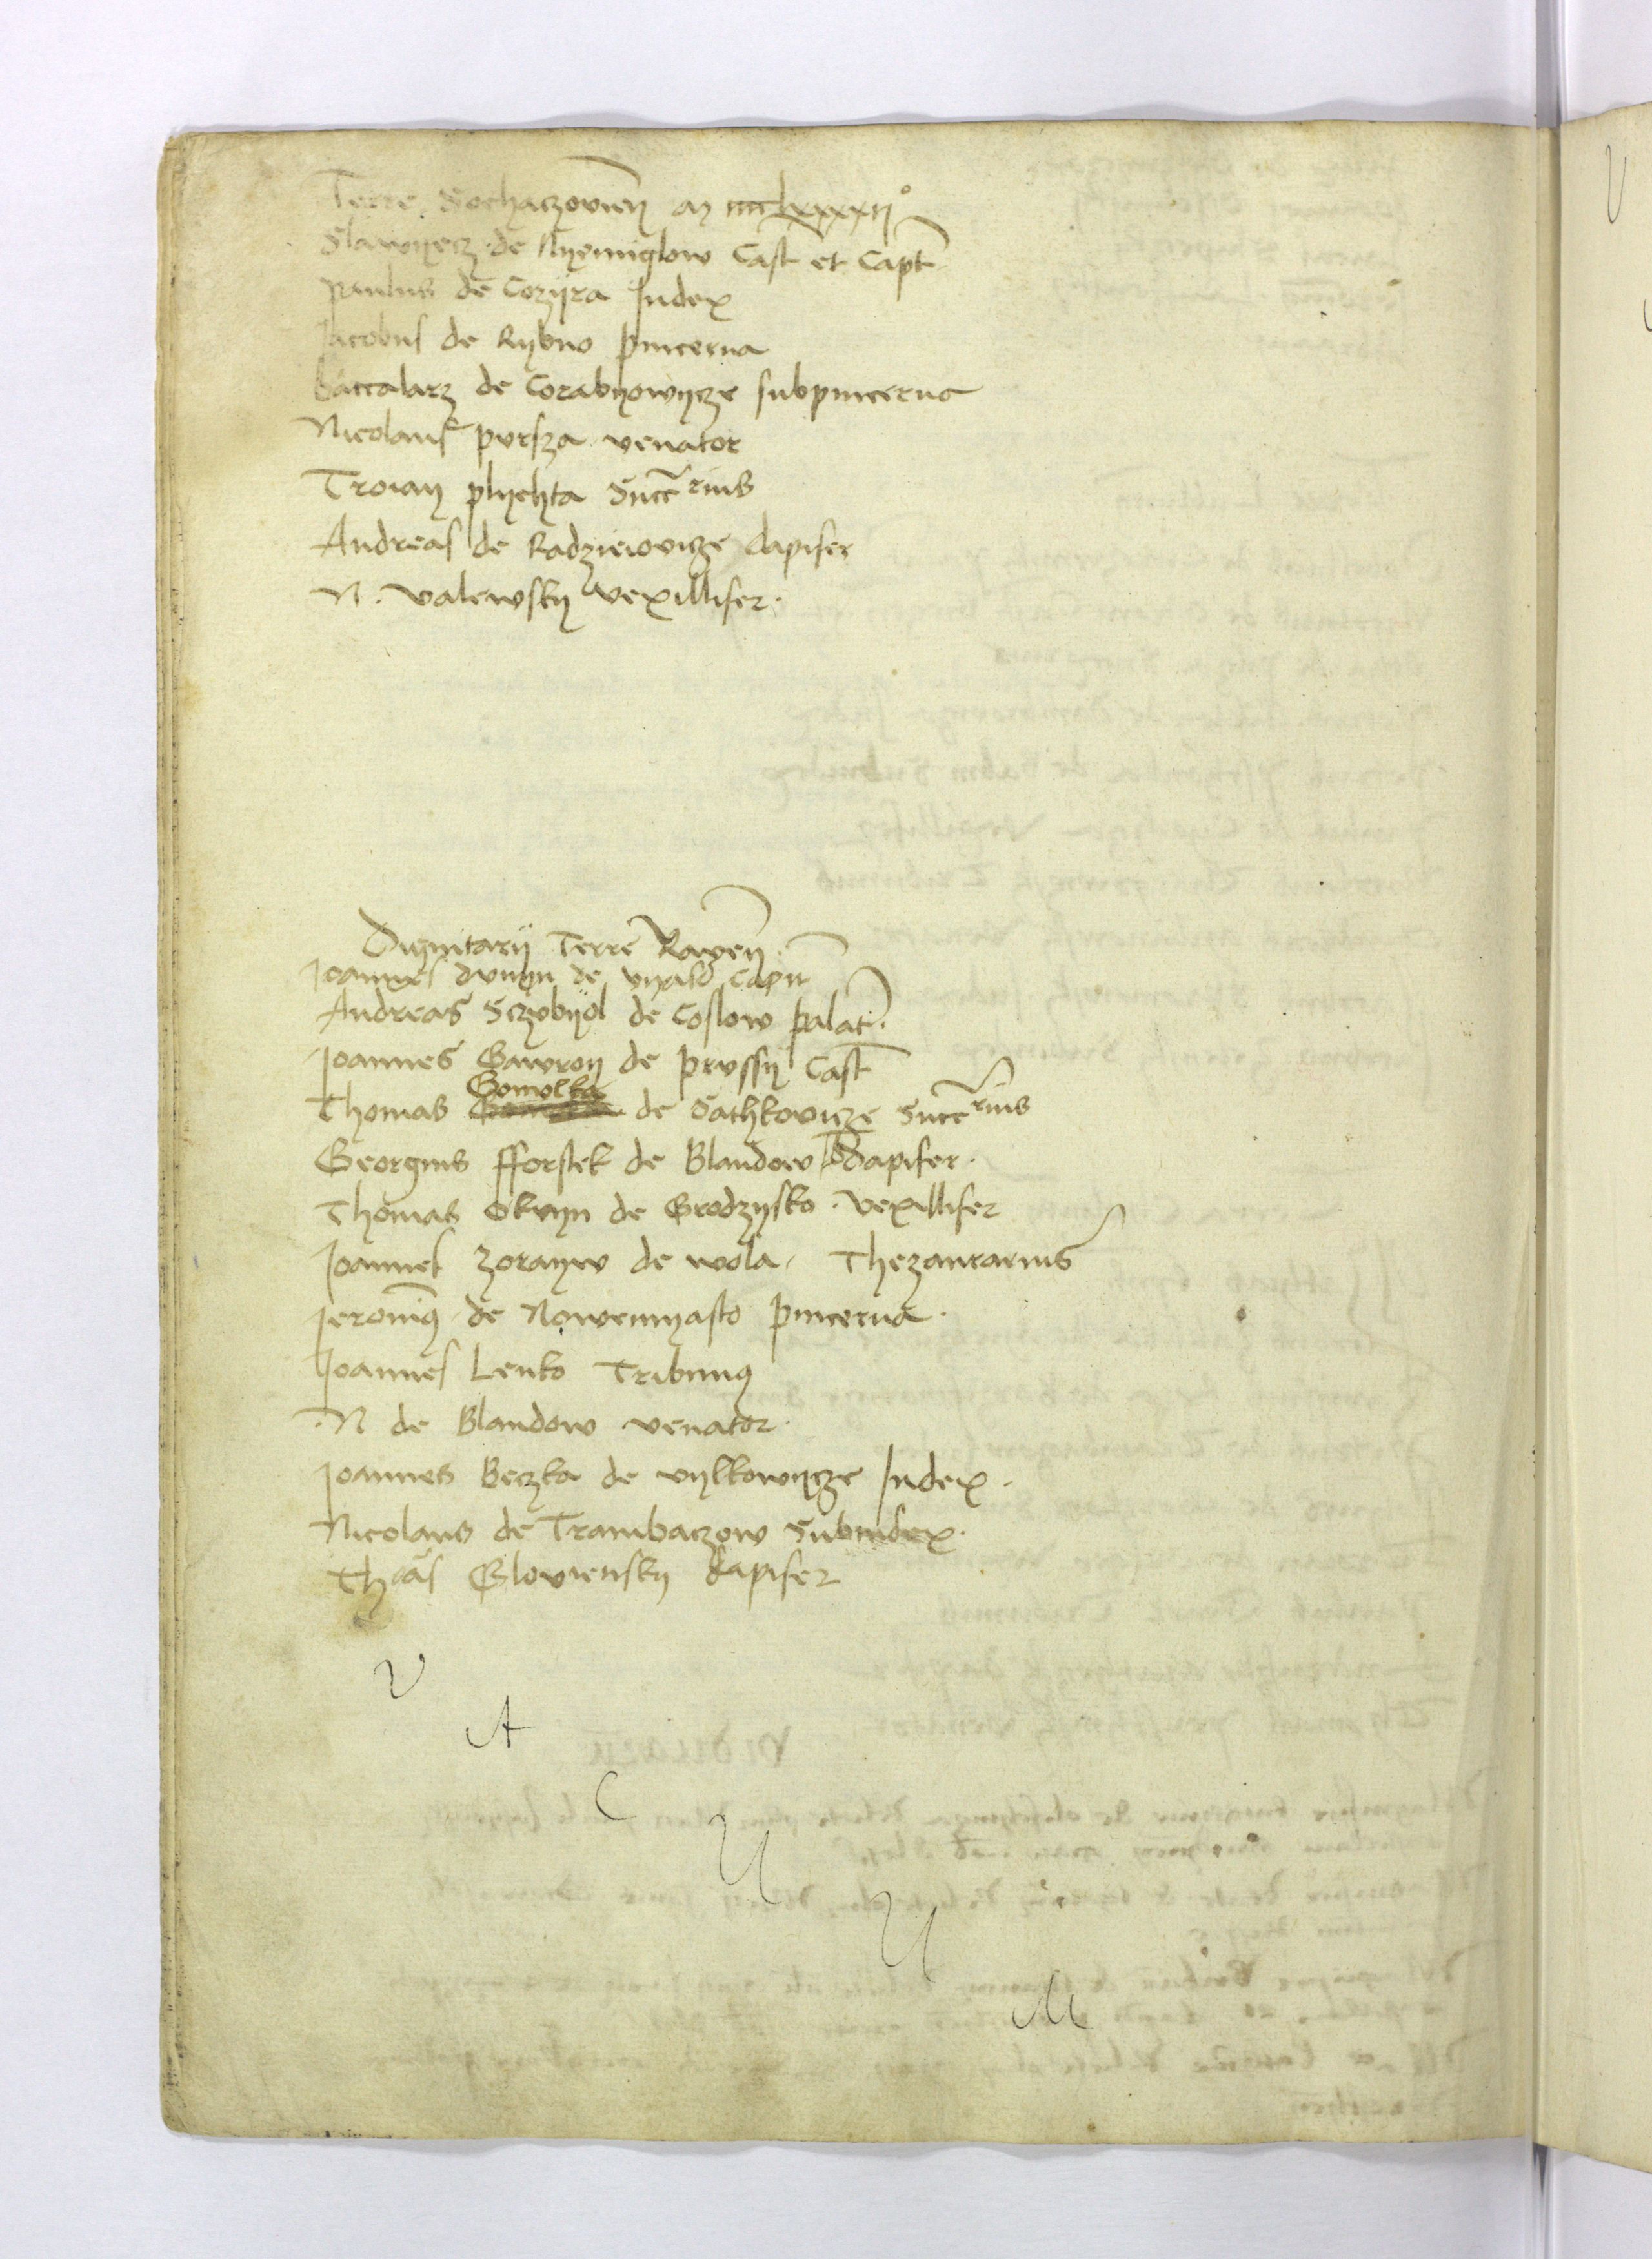 Terre Sochaczovien
Slawyecz de Nyemiglow Cast et Capt
Paulus de Cozyra Judex
Jacobus de Rybno pincerna
baccalarz de Corabyowycze subpincerna
Nicolaus pursza venator
Troian plychta Succerius
Andreas de Radzieiovicze dapifer
N. valewsky vexillifer.
Dignitarij Terre Raven
Joannes dunyn de Capit
Andreas Sczubyol de Coslow palat.
Joannes Gawron de prussy Cast
Thomas Gomolka de Sathkovicze Succerius
Georgius fforstek de Blandow dapifer.
Thomas Okunyn de Grodzysko. vexillifer
Joannes zoraw de wola. Thezaurarius
Jeronimus de Nowemyasto pincerna.
Joannes Lenko Tribunus
N de Blandow venator.
Joannes Beczka de vylkowycze Judex.
Nicolaus de Trambaczow Subiudex.
Thoas Gloviensky dapifer
V
A
C
U
U
M